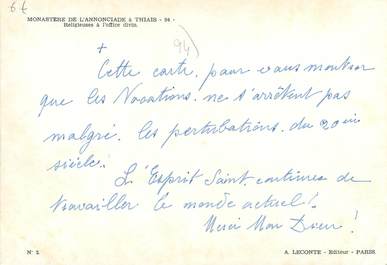 6€
MONASTÈRE DE L'ANNONCIADE à THIAIS - 94 -
Religieuses à l'office divin.
94)
+
Cette carte, pour vous montrer
que les Vocations ne s'arrêtent pas
malgré les perturbations du 20 ième
siècle.
L'Esprit Saint continue de
travailler le monde actuel!
Merci Mon Dieu!
N° 2. A. LECONTE - Editeur - PARIS.